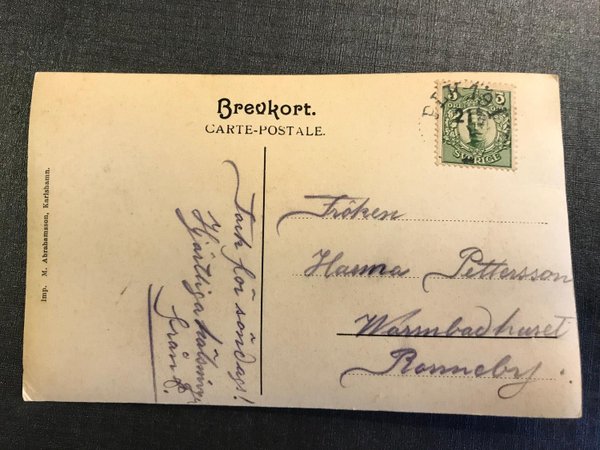 Brevkort.
CARTE-POSTALE.
5
SVERIGE
21
Imp. M. Abrahamsson, Karlshamn.
Tack för söndags!
Hjärtliga hälsningar
från
Fröken
Hanna Pettersson
Warmbadhuset
Ronneby.